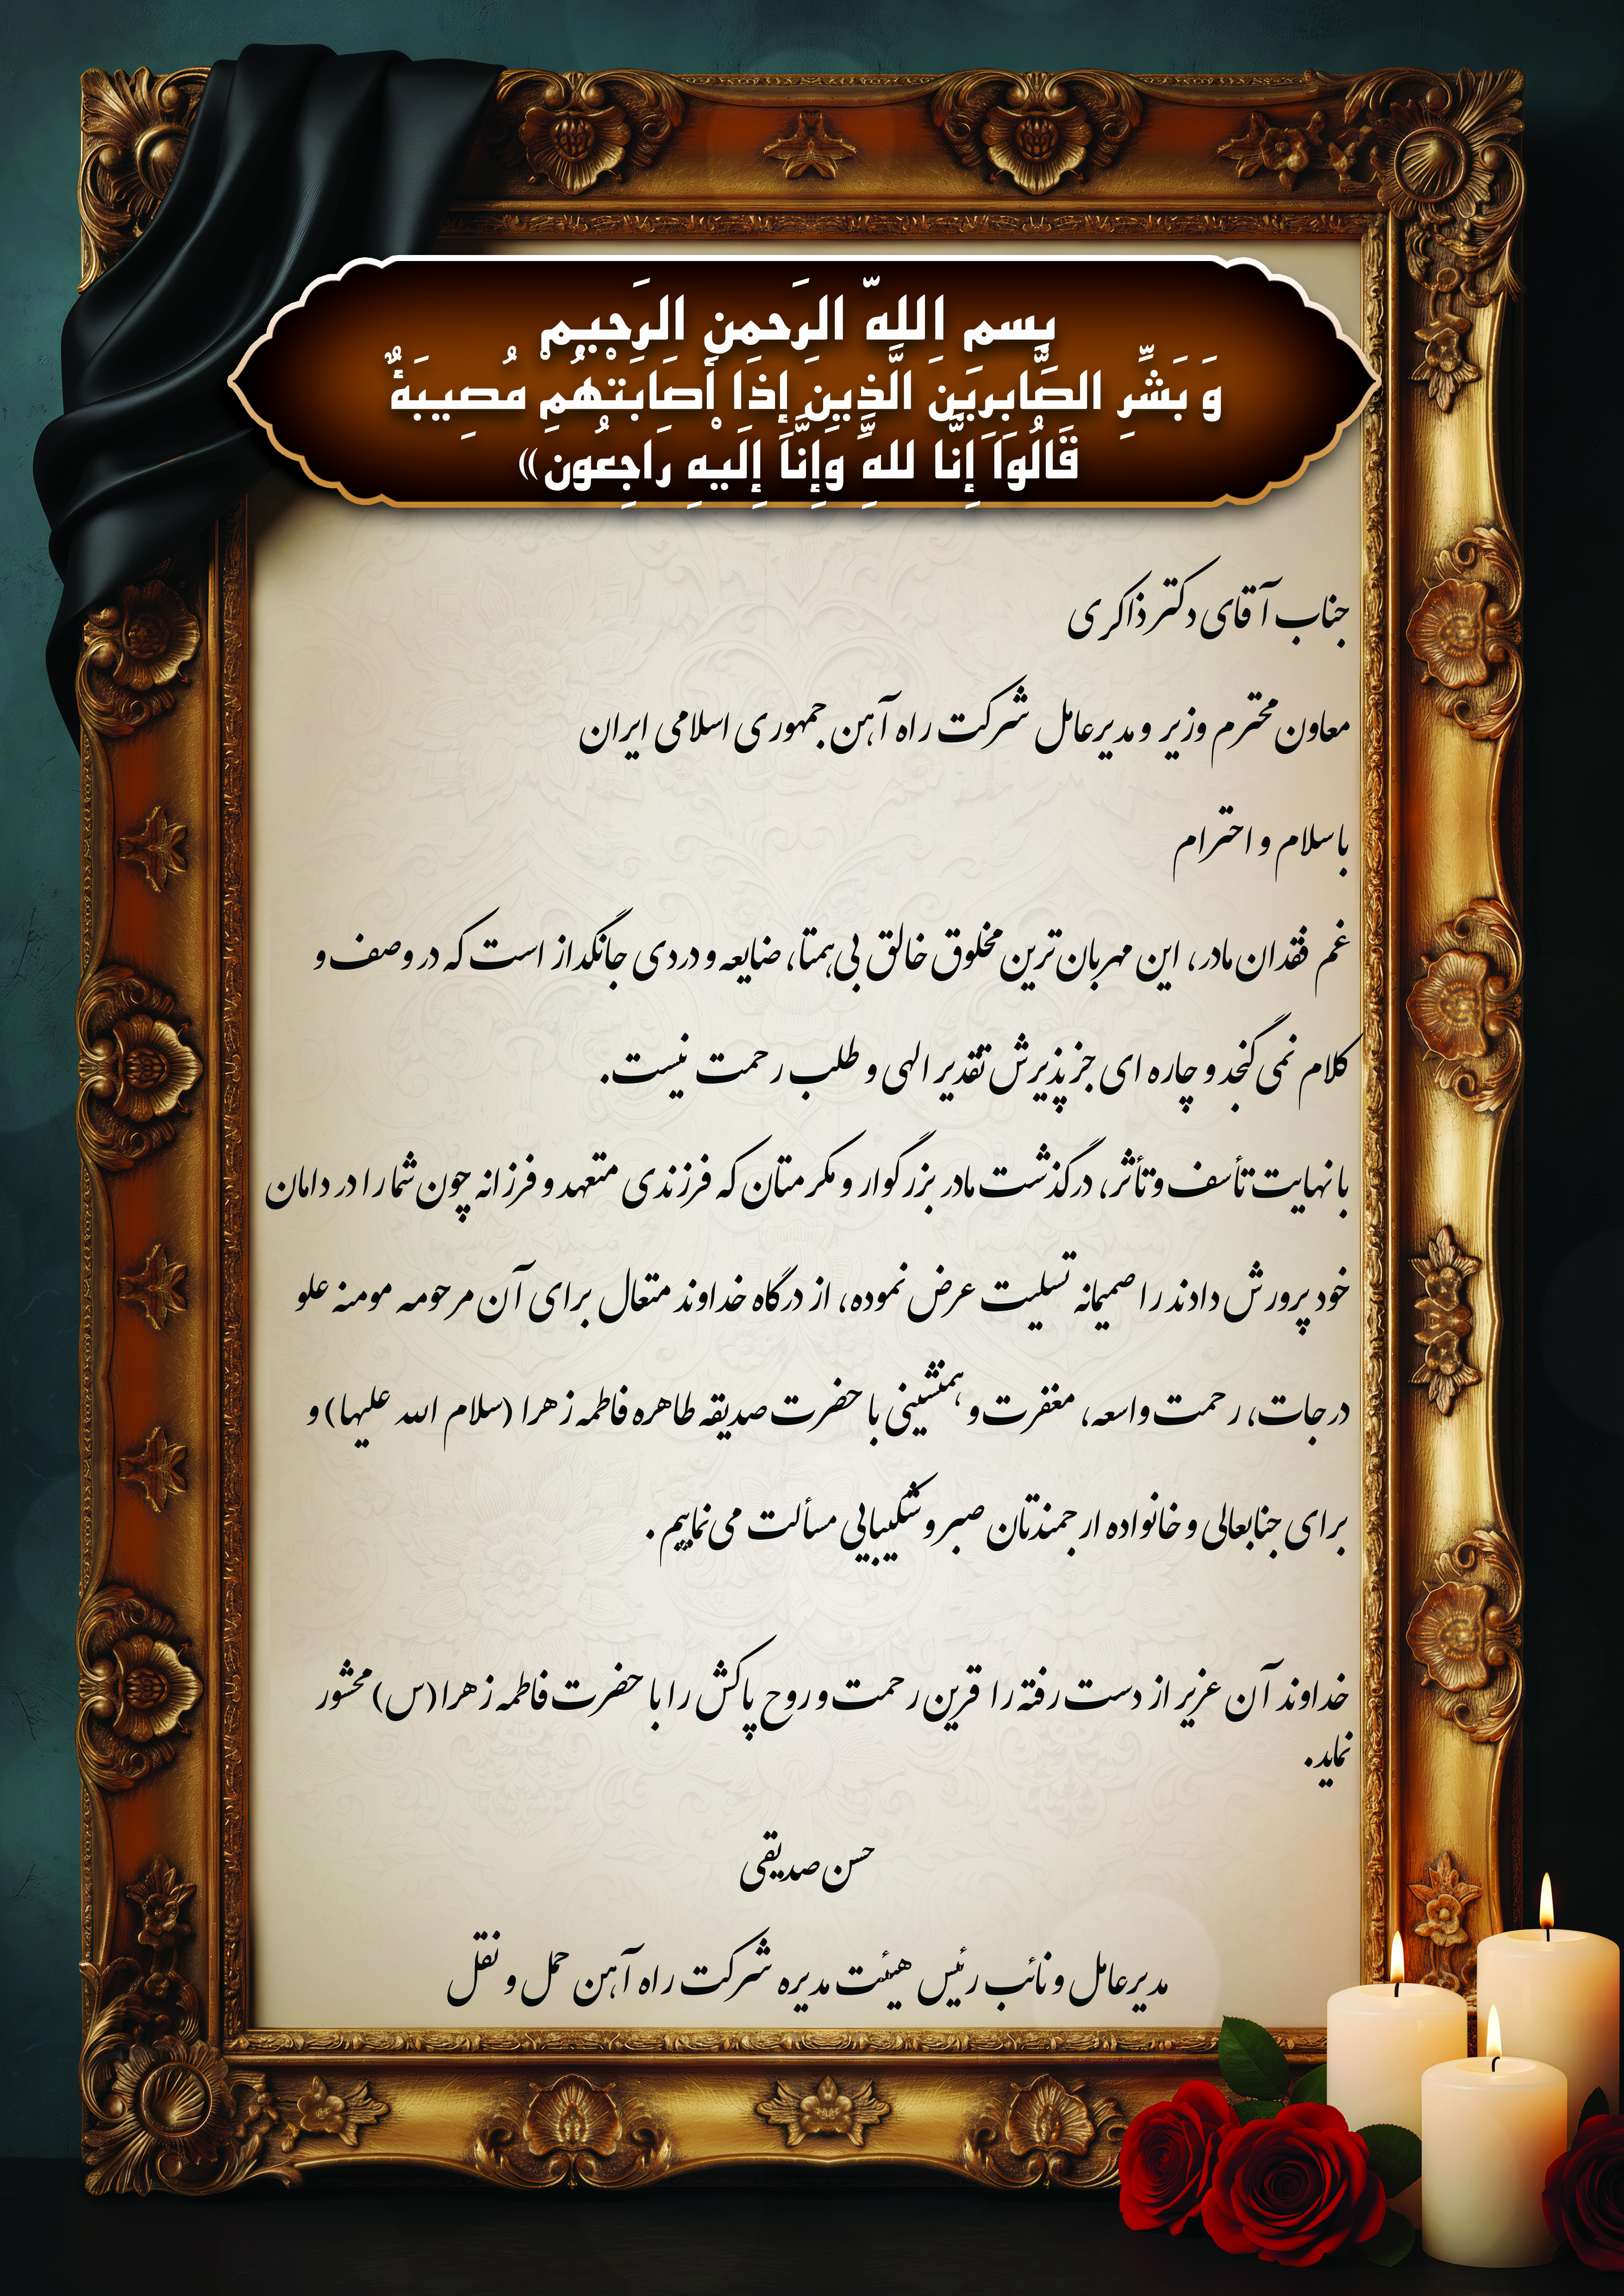 بسم اللّه الرَحمن الرَحیم
وَ بَشِّرِ الصَّابِرِینَ الَّذِینَ إِذَا أَصَابَتْهُمْ مُصِیبَةٌ
قَالُوَاَ إِنَّا للهِ وَإِنَّا إِلَیْهِ رَاجِعُونَ»
جناب آقای دکتر ذاکری
معاون محترم وزیر و مدیرعامل شرکت راه آهن جمهوری اسلامی ایران
با سلام و احترام
غم فقدان مادر، این مهربان‌ترین مخلوق خالق بی‌همتا، ضایعه و دردی جانگداز است که در وصف و
کلام نمی گنجد و چاره ای جز پذیرش تقدیر الهی و طلب رحمت نیست.
با نهایت تأسف و تأثر، درگذشت مادر بزرگوار و مکرمتان که فرزندی متعهد و فرزانه چون شما را در دامان
خود پرورش دادند را صمیمانه تسلیت عرض نموده، از درگاه خداوند متعال برای آن مرحومه مومنه علو
درجات، رحمت واسعه، مغفرت و همنشینی با حضرت صدیقه طاهره فاطمه زهرا (سلام الله علیها) و
برای جنابعالی و خانواده ارجمندتان صبر و شکیبایی مسألت می‌نماییم.
خداوند آن عزیز از دست رفته را قرین رحمت و روح پاکش را با حضرت فاطمه زهرا(س) محشور
نماید.
حسن صدیقی
مدیرعامل و نائب رئیس هیئت مدیره شرکت راه آهن حمل و نقل